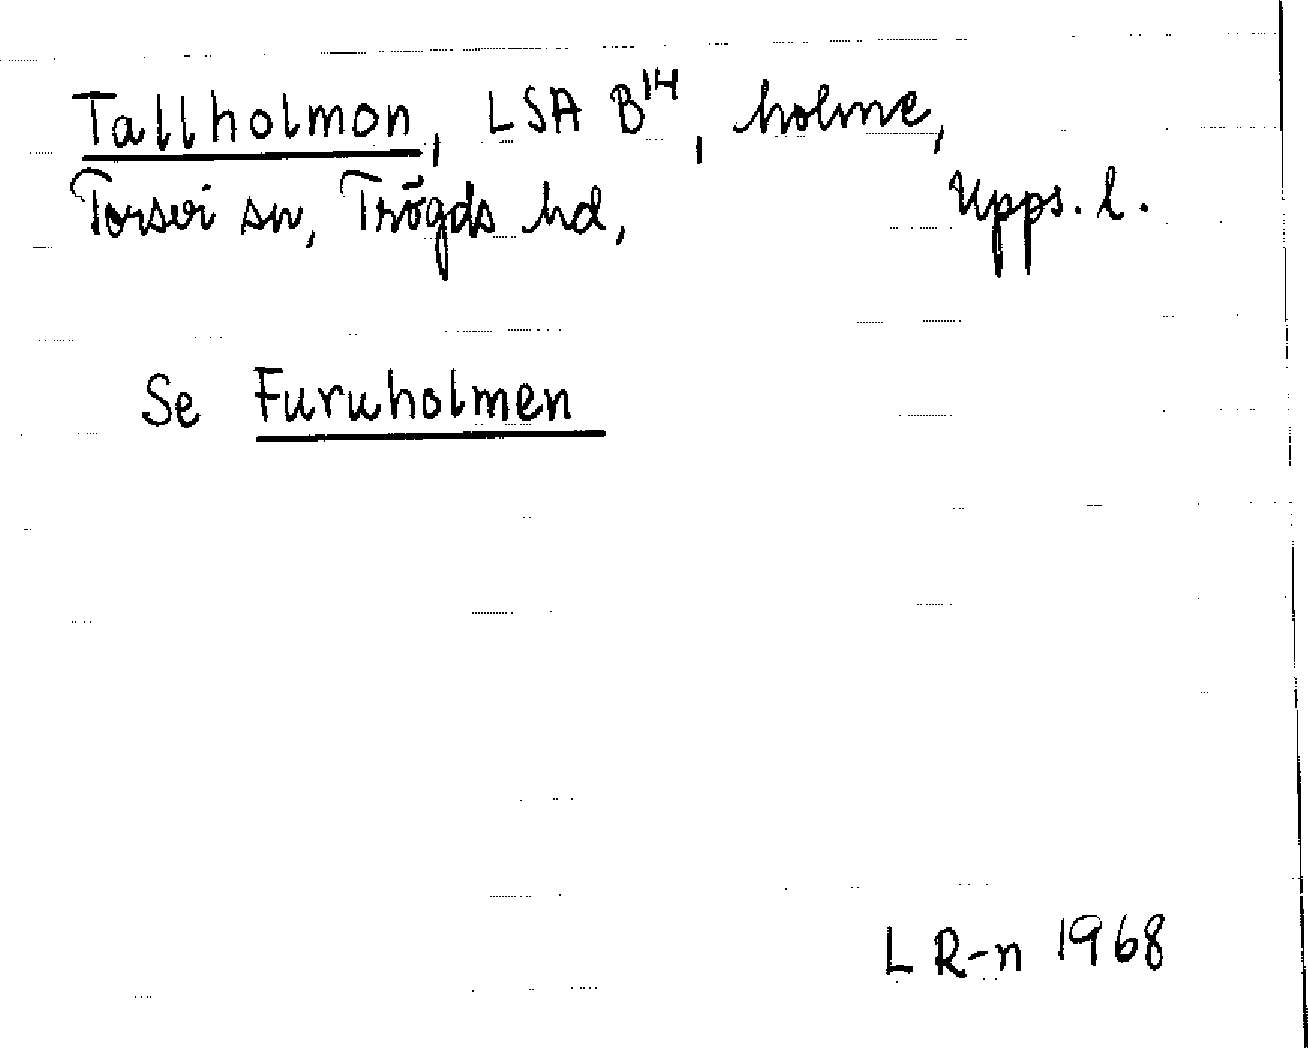 Tallholmon, LSA B¹⁴, holme,
Torsvi sn, Trögds hd, Upps. l.
Se Furuholmen
L R-n 1968